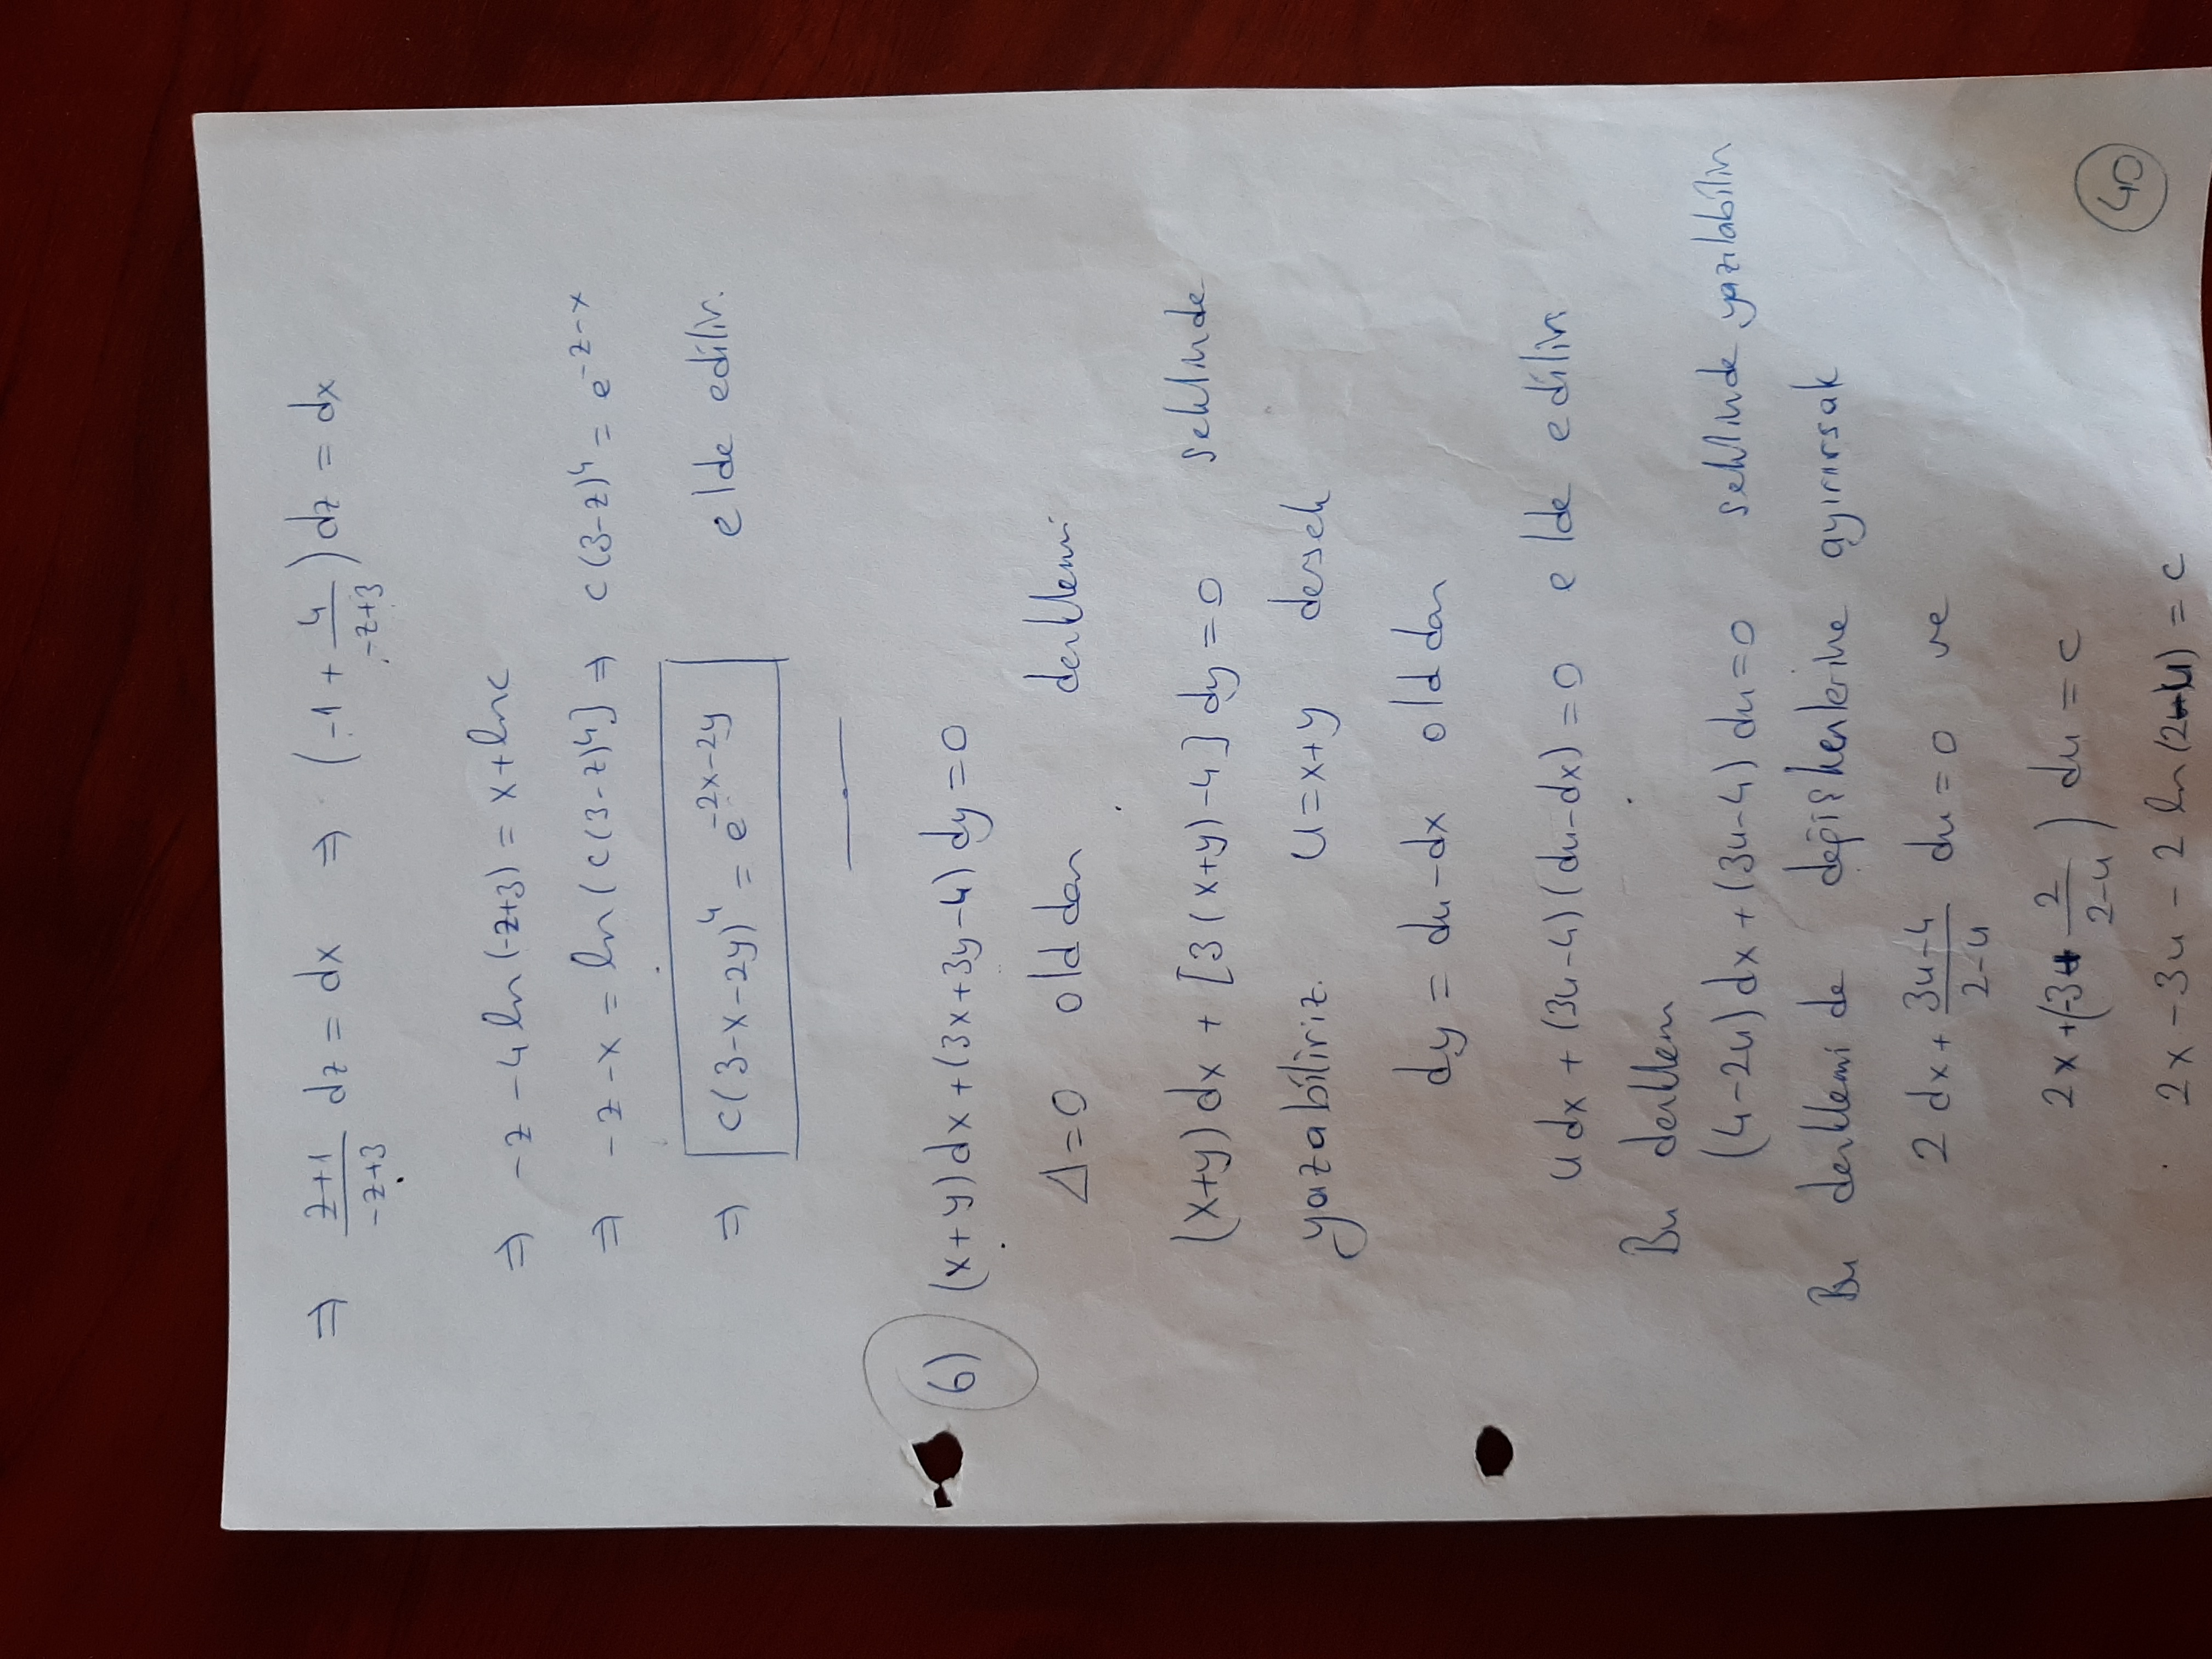 ⇒ (z+1)/(-z+3) dz = dx ⇒ (-1 + 4/(-z+3)) dz = dx
⇒ -z - 4 ln(-z+3) = x + lnc
⇒ -z - x = ln(c(3-z)⁴] ⇒ c(3-z)⁴ = e^(-z-x)
⇒ c(3-x-2y)⁴ = e^(-2x-2y) elde edilir.
6) (x+y)dx + (3x+3y-4) dy = 0
Δ=0 olddan denklemi
(x+y)dx + [3(x+y)-4] dy = 0 seklinde
yazabiliriz. u=x+y dersek
dy = du-dx olddan
u dx + (3u-4)(du-dx) = 0 elde edilir.
Bu denklem
(4-2u)dx + (3u-4) du = 0 seklinde yazılabilir
Bu denklemi de değişkenlerine ayırırsak
2 dx + (3u-4)/(2-u) du = 0 ve
2x + (-3+ 2/(2-u)) du = c
2x - 3u - 2 ln(2-u) = c
40